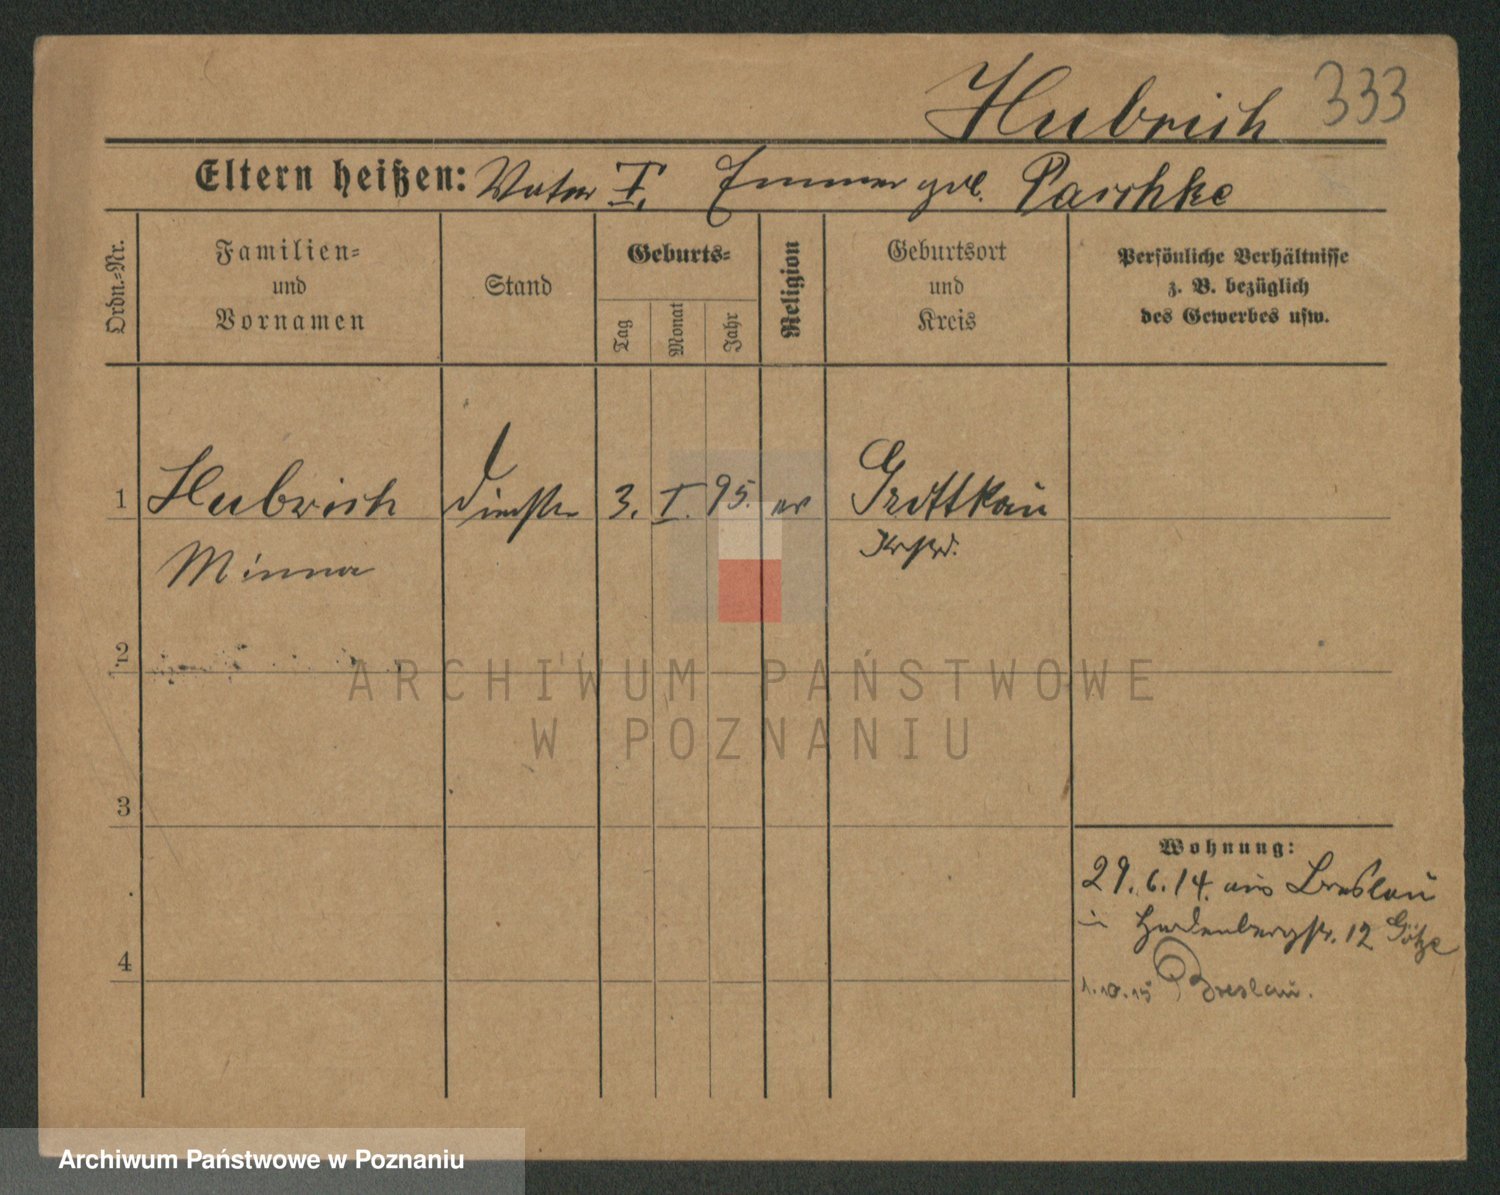 Hubrich 333
Eltern heißen: Vater I. Emma geb. Paschke
Ordn.-Nr.
Familien-
und
Vornamen
Stand
Geburts-
Tag
Monat
Jahr
Religion
Geburtsort
und
Kreis
Persönliche Verhältnisse
z. B. bezüglich
des Gewerbes usw.
1 Hubrich 3. I. 95. ev Grottkau
Minna
2
3
4
Wohnung:
29. 6. 14. aus Breslau
in Hardenbergstr. 12 Götze
1.10.15 Breslau.
ARCHIWUM PAŃSTWOWE
W POZNANIU
Archiwum Państwowe w Poznaniu